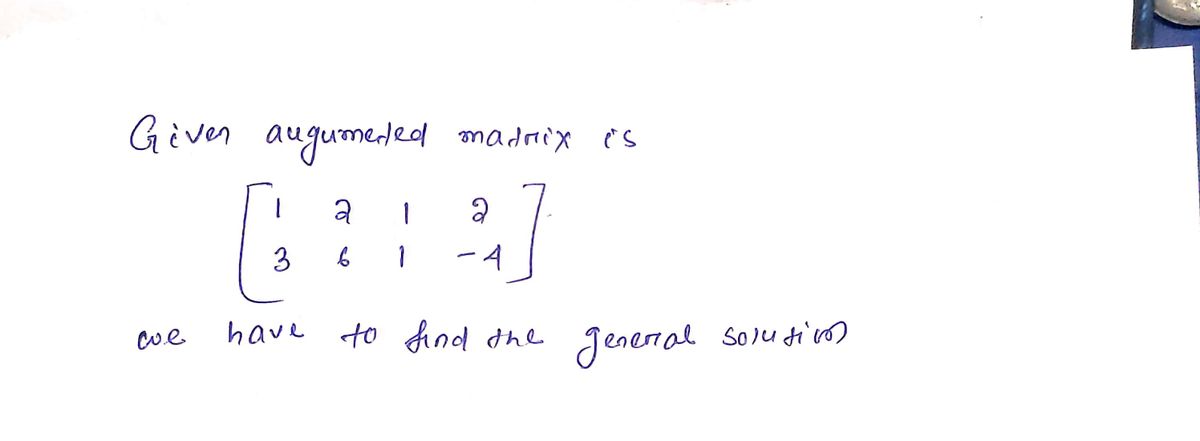 Given augumented matrix is
1 2 1 2
3 6 1 -4
we have to find the general solution